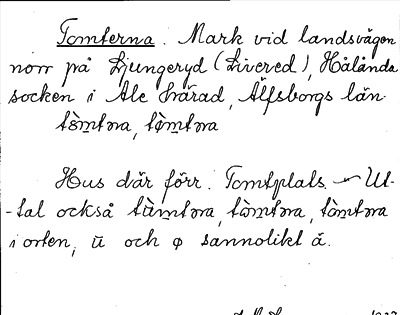 Tomterna. Mark vid landsvägen
norr på Ljungeryd (Livered), Hålanda
socken i Ale härad, Älfsborgs län.
tòmtəra, tømtəra
Hus där förr. Tomtplats. – Ut-
-tal också tùmtəra, tòmtəra, tòmtəra
i orten, ū och ø sannolikt å.